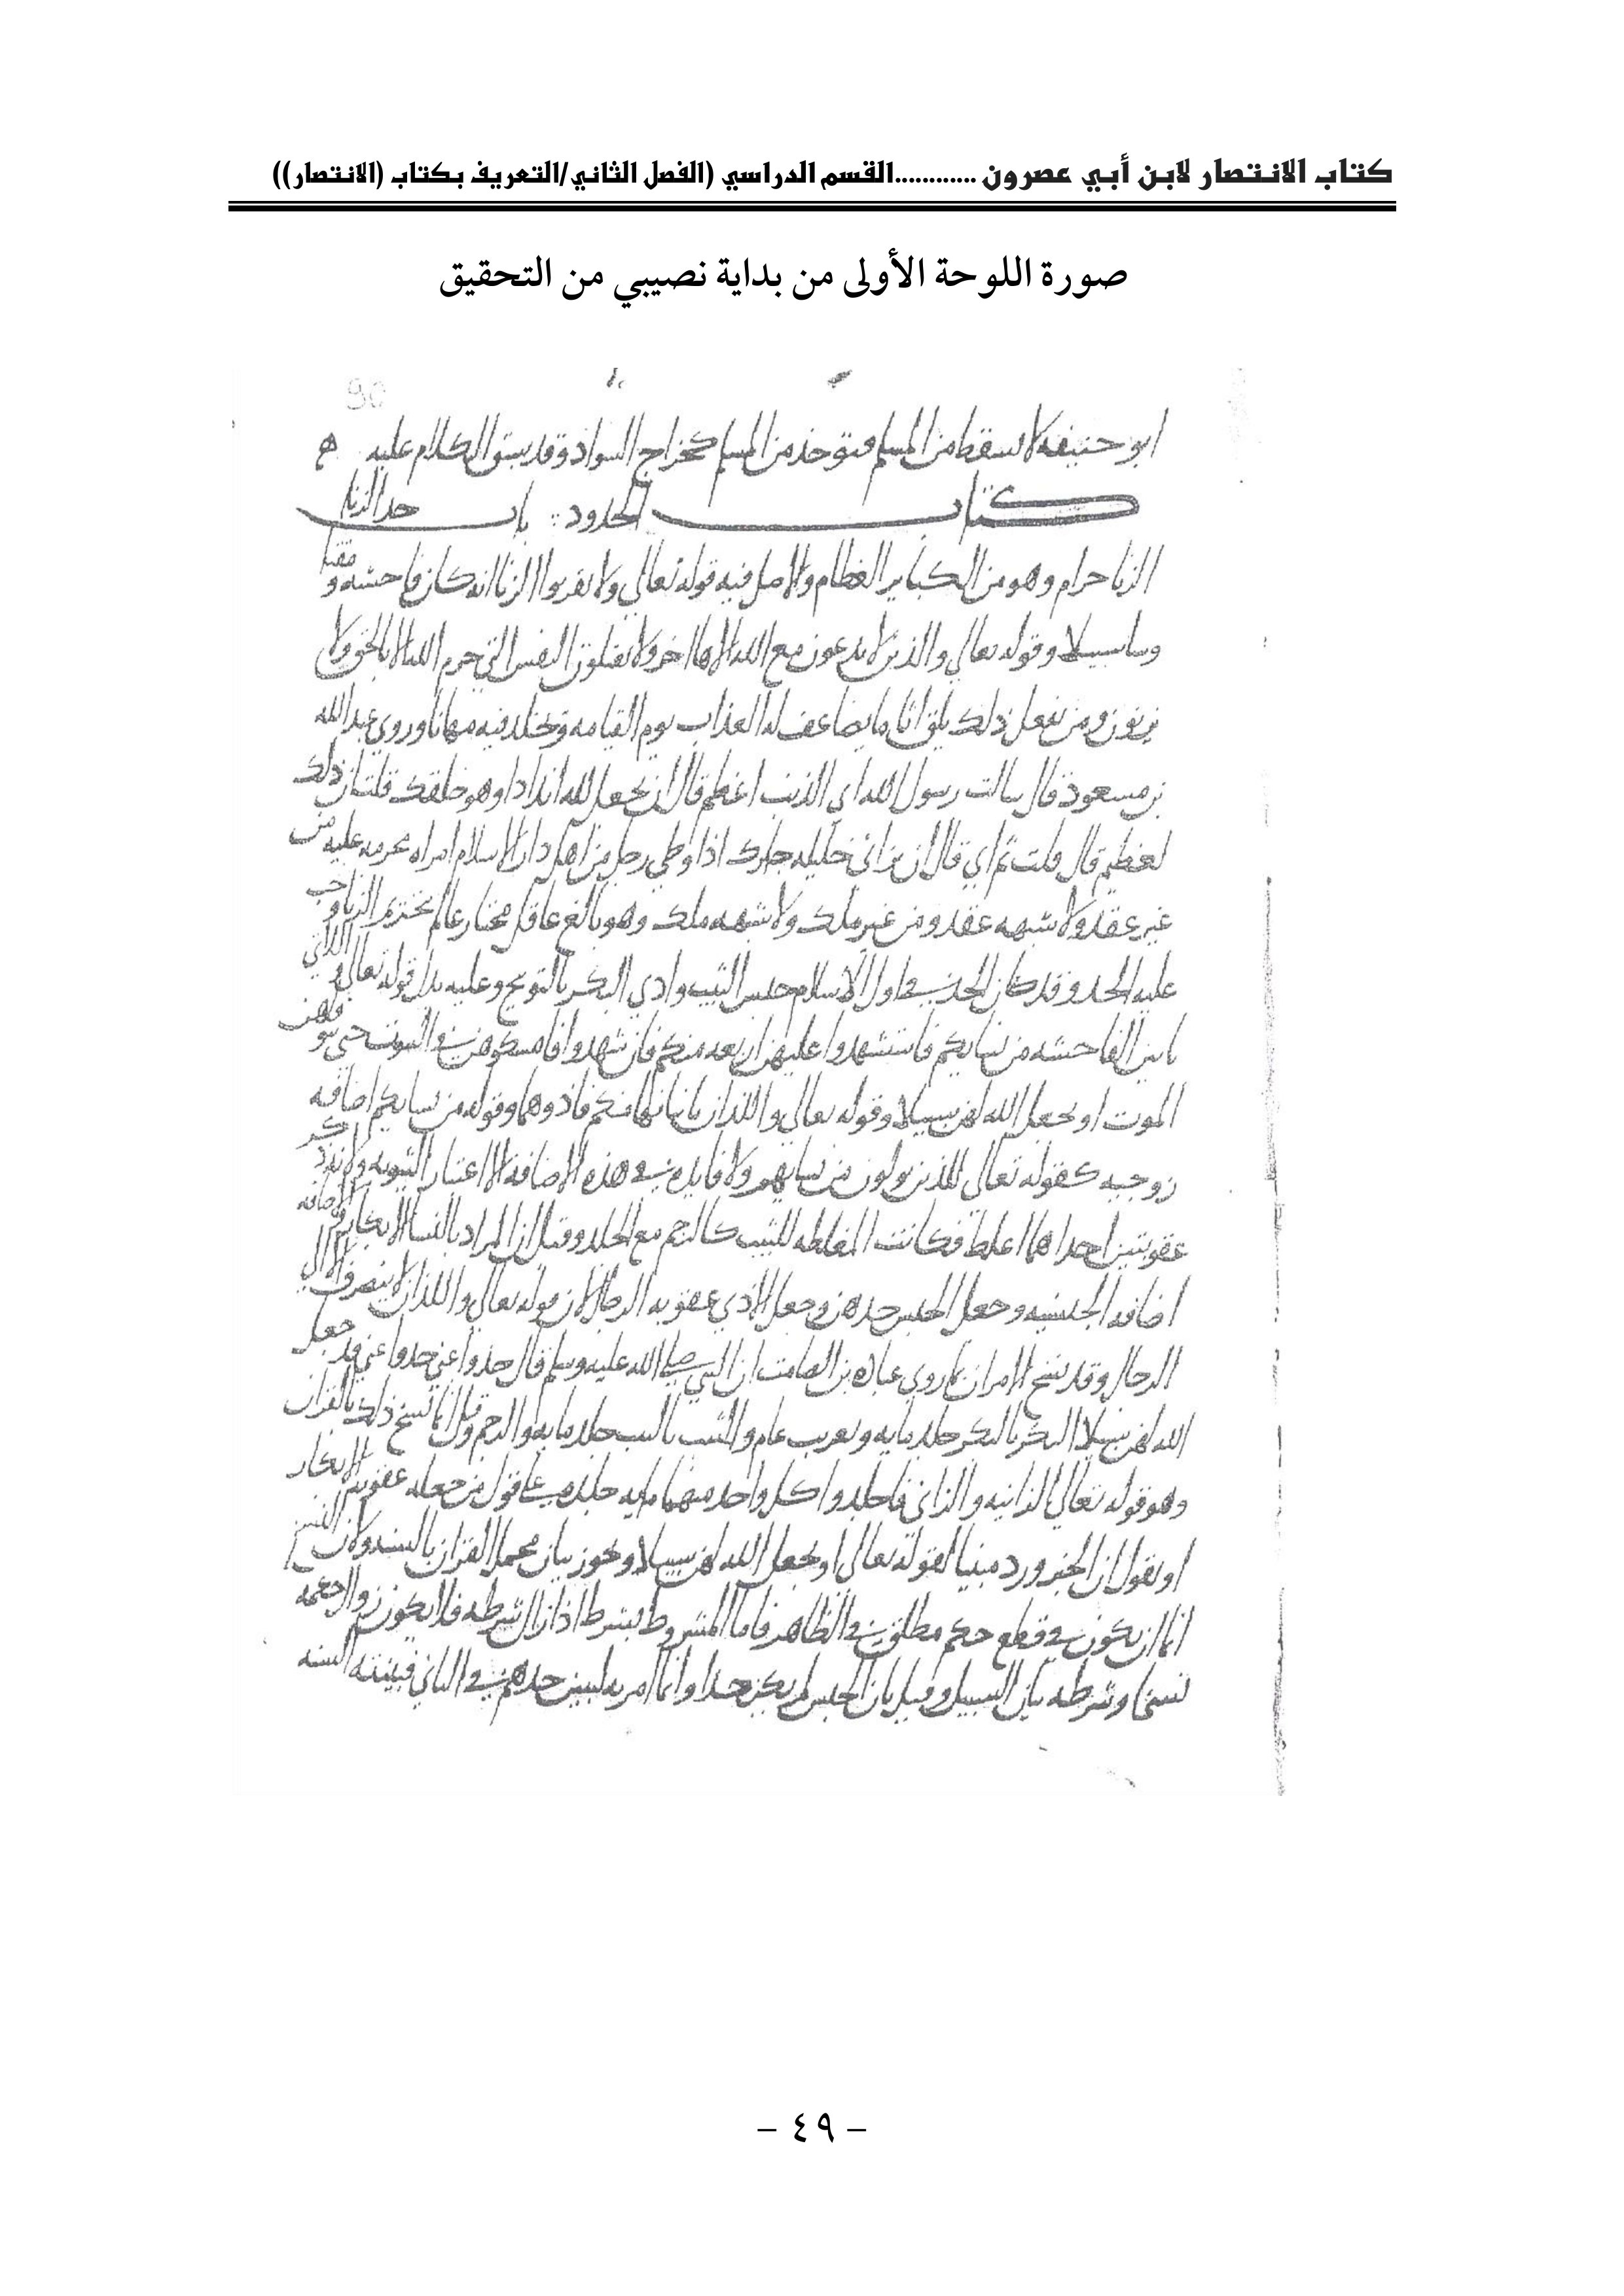 كتاب الانتصار لابن أبي عصرون ............القسم الدراسي (الفصل الثاني/التعريف بكتاب (الانتصار))
صورة اللوحة الأولى من بداية نصيبي من التحقيق
90
ابو حنيفه لا يسقط من المسلم فتوخذ من المسلم كخراج السواد وقد سبق الكلام عليه ه
كتاب الحدود : باب حد الزنا
الزنا حرام وهو من الكباير العظام والاصل فيه قوله تعالى ولا تقربوا الزنا انه كان فاحشه ومقتا
وسا سبيلا وقوله تعالى والذين لا يدعون مع الله الاها اخر ولا يقتلون النفس التي حرم الله الا بالحق ولا
يزنون ومن يفعل ذلك يلق اثاما يضاعف له العذاب يوم القيامه ويخلد فيه مهانا وروى عبد الله
بن مسعود قال سالت رسول الله اي الذنب اعظم قال ان تجعل لله اندادا وهو خلقك قلت ان ذلك
لعظيم قال قلت ثم اي قال ان تزاني حليله جارك اذا وطي رجل من اهل دار الاسلام امراه محرمه عليه من
غير عقد ولا شبهه عقد ومن غير ملك ولا شبهه ملك وهو بالغ عاقل مختار عالم بتحريم الزنا وجب
عليه الحد وقد كان الحد في اول الاسلام حبس الثيب واذي البكر بالتوبيخ وعليه يدل قوله تعالى واللاتي
ياتين الفاحشه من نسايكم فاستشهدوا عليهن اربعه منكم فان شهدوا فامسكوهن في البيوت حتى يتوفاهن
الموت او يجعل الله لهن سبيلا وقوله تعالى واللذان ياتيانها منكم فاذوهما وقوله من نسايكم اضافه
زوجيه كقوله تعالى للذين يولون من نسايهم ولا فايده في هذه الاضافه الا اعتبار الثيوبه ولانه ذكر
عقوبتين احداهما اغلظ فكانت المغلظه للثيب كالرجم مع الجلد وقيل ان المراد بالنسا الابكار والاضافه
اضافه الجنسيه وجعل الحبس حدهن وجعل الاذي عقوبه الرجال لان قوله تعالى واللذان لا ينصرف الا الى
الرجال وقد نسخ الامران بما روى عباده بن الصامت ان النبي صلى الله عليه وسلم قال خذوا عني خذوا عني قد جعل
الله لهن سبيلا البكر بالبكر جلد مايه وتغريب عام والثيب بالثيب جلد مايه والرجم وقيل انما نسخ ذلك بالقران
وهو قوله تعالى الزانيه والزاني فاجلدوا كل واحد منهما مايه جلده على قول من جعله عقوبه الابكار
او نقول ان الخبر ورد مبنيا لقوله تعالى او يجعل الله لهن سبيلا ويجوز بيان مجمل القران بالسنه ولان النسخ
انما ان يكون في قطع حكم مطلق في الظاهر فاما المشروط بشرط اذا زال شرطه فلا يكون زوال حكمه
نسخا وشرطه بيان السبيل وقيل بان الحبس لم يكن حدا وانما امر به ليبين حدهم في الثاني فبينته السنه
- ٤٩ -